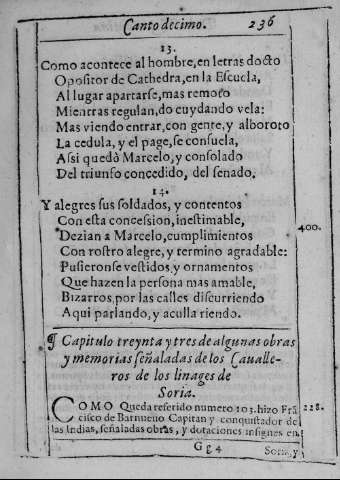 Canto decimo. 236
13.
Como acontece al hombre, en letras docto
Opositor de Cathedra, en la Escuela,
Al lugar apartarse, mas remoto
Mientras regulan, do cuydando vela:
Mas viendo entrar, con gente, y alboroto
La cedula, y el page, se consuela,
Assi quedò Marcelo, y consolado
Del triunfo concedido, del senado.
14.
Y alegres sus soldados, y contentos
Con esta concession, inestimable,
Dezian a Marcelo, cumplimientos 400.
Con rostro alegre, y termino agradable:
Pusieronse vestidos, y ornamentos
Que hazen la persona mas amable,
Bizarros, por las calles discurriendo
Aqui parlando, y aculla riendo.
¶ Capitulo treynta y tres de algunas obras
y memorias señaladas de los Caualle-
ros de los linages de
Soria.
COMO Queda referido numero 103. hizo Frã 228.
cisco de Barnueuo Capitan y conquistador de
las Indias, señaladas obras, y dotaciones insignes en
G g 4 Soria, y